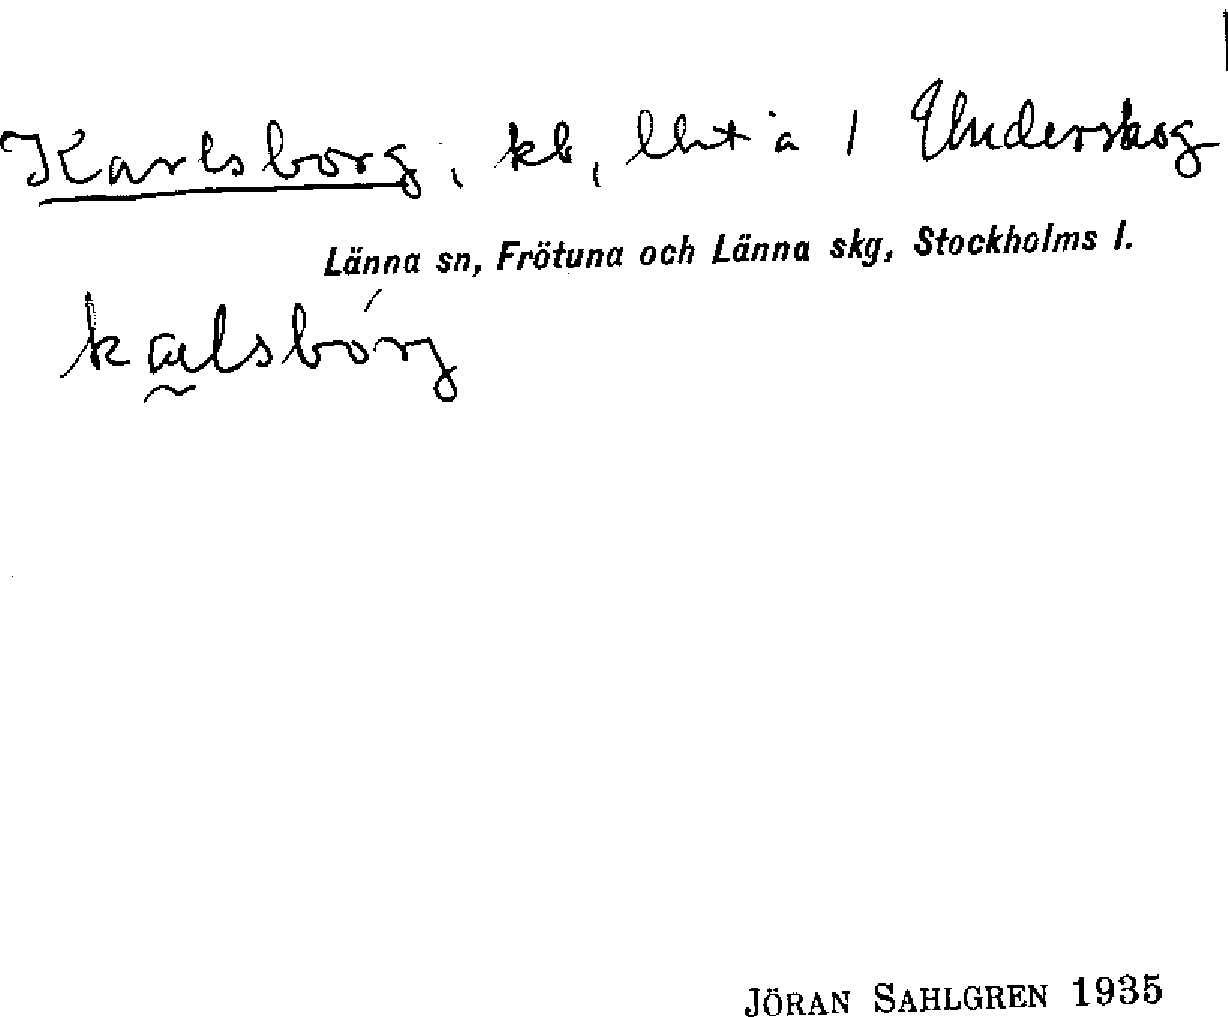 Karlsborg, kb, lht å 1 Underskog
Länna sn, Frötuna och Länna skg, Stockholms l.
kalsbórg
JÖRAN SAHLGREN 1935